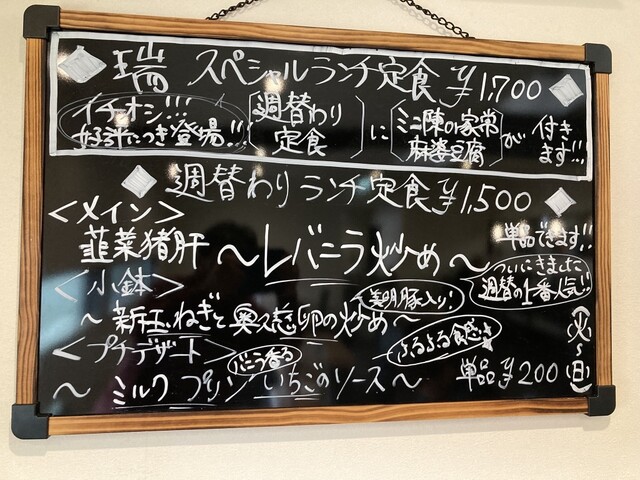 瑞 スペシャルランチ定食 ¥1,700
イチオシ!!!
好評につき登場!!
週替わり
定食
に
ミニ陳の家常
麻婆豆腐
が
付き
ます!!
週替わりランチ定食 ¥1,500
<メイン>
韮菜猪肝 ～レバニラ炒め～
単品できます!!
ついにきました
週替の1番人気!!
<小鉢>
美明豚入り!
～新玉ねぎと奥久慈卵の炒め～
<プチデザート>
バニラ香る
ぷるぷる食感
～ミルクプリンいちごのソース～
単品 ¥200
(火～日)